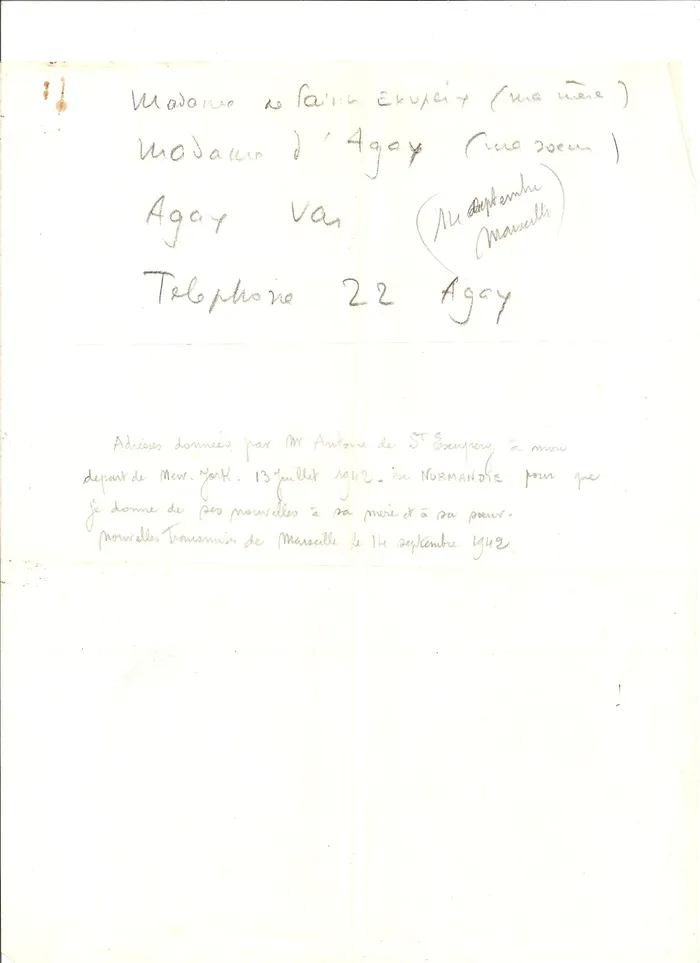 Madame de Saint Exupéry (ma mère)
Madame d'Agay (ma soeur)
Agay Var
(14 septembre
Marseille)
Telephone 22 Agay
Adresses données par Mr Antoine de St Exupery à mon
depart de New-York. 13 Juillet 1942. NORMANDIE pour que
je donne de ses nouvelles à sa mère et à sa soeur.
nouvelles transmises de Marseille le 14 septembre 1942